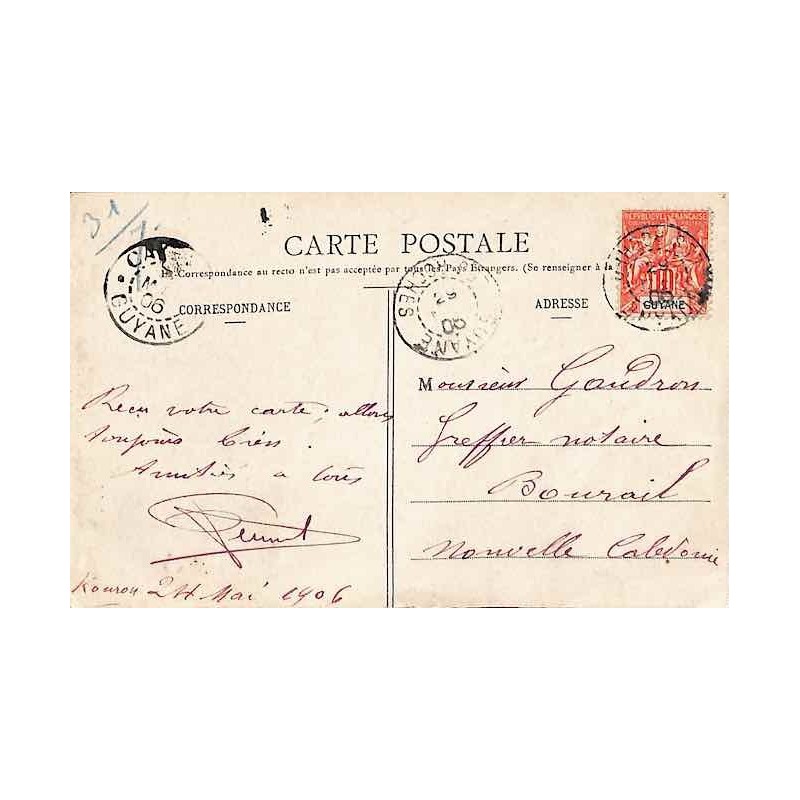 31/7
CARTE POSTALE
La Correspondance au recto n'est pas acceptée par tous les Pays Étrangers. (Se renseigner à la
CORRESPONDANCE
ADRESSE
RÉPUBLIQUE FRANÇAISE
10
GUYANE
06
GUYANE
29
GUYANE
29
Reçu votre carte; allons
toujours bien.
Amitiés à tous
Kourou 24 Mai 1906
Monsieur Gaudron
Greffier notaire
Bourail
Nouvelle Calédonie